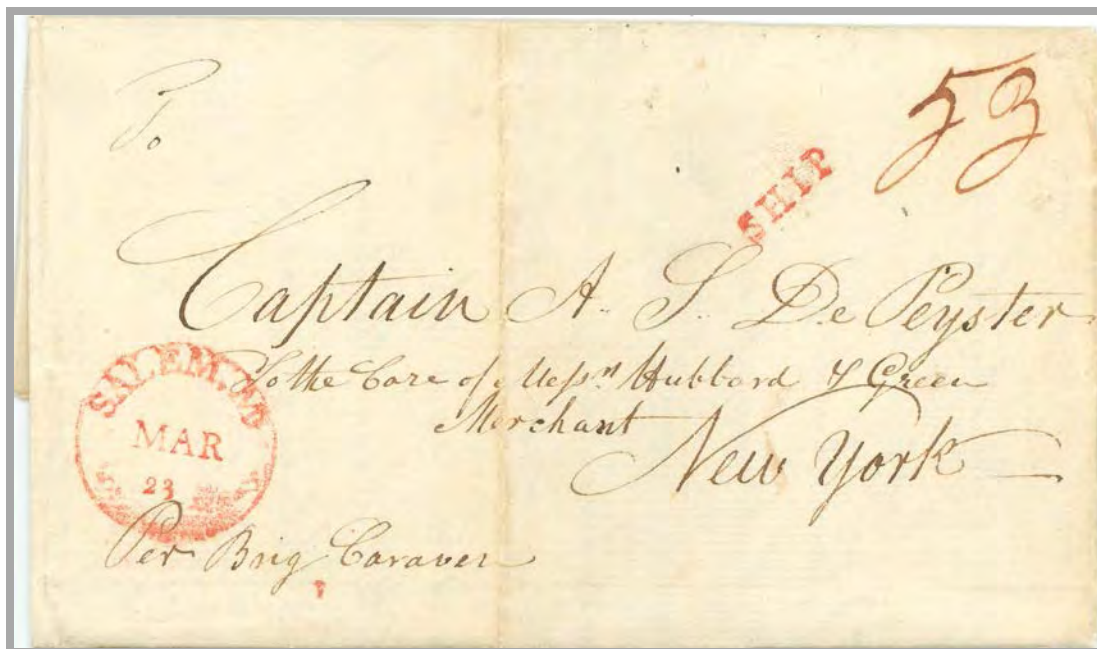 To
53
SHIP
Captain A. S. De Peyster
To the Care of Messrs Hubbard & Green
Merchant
New York
SALEM. MS
MAR
23
Per Brig Caravan